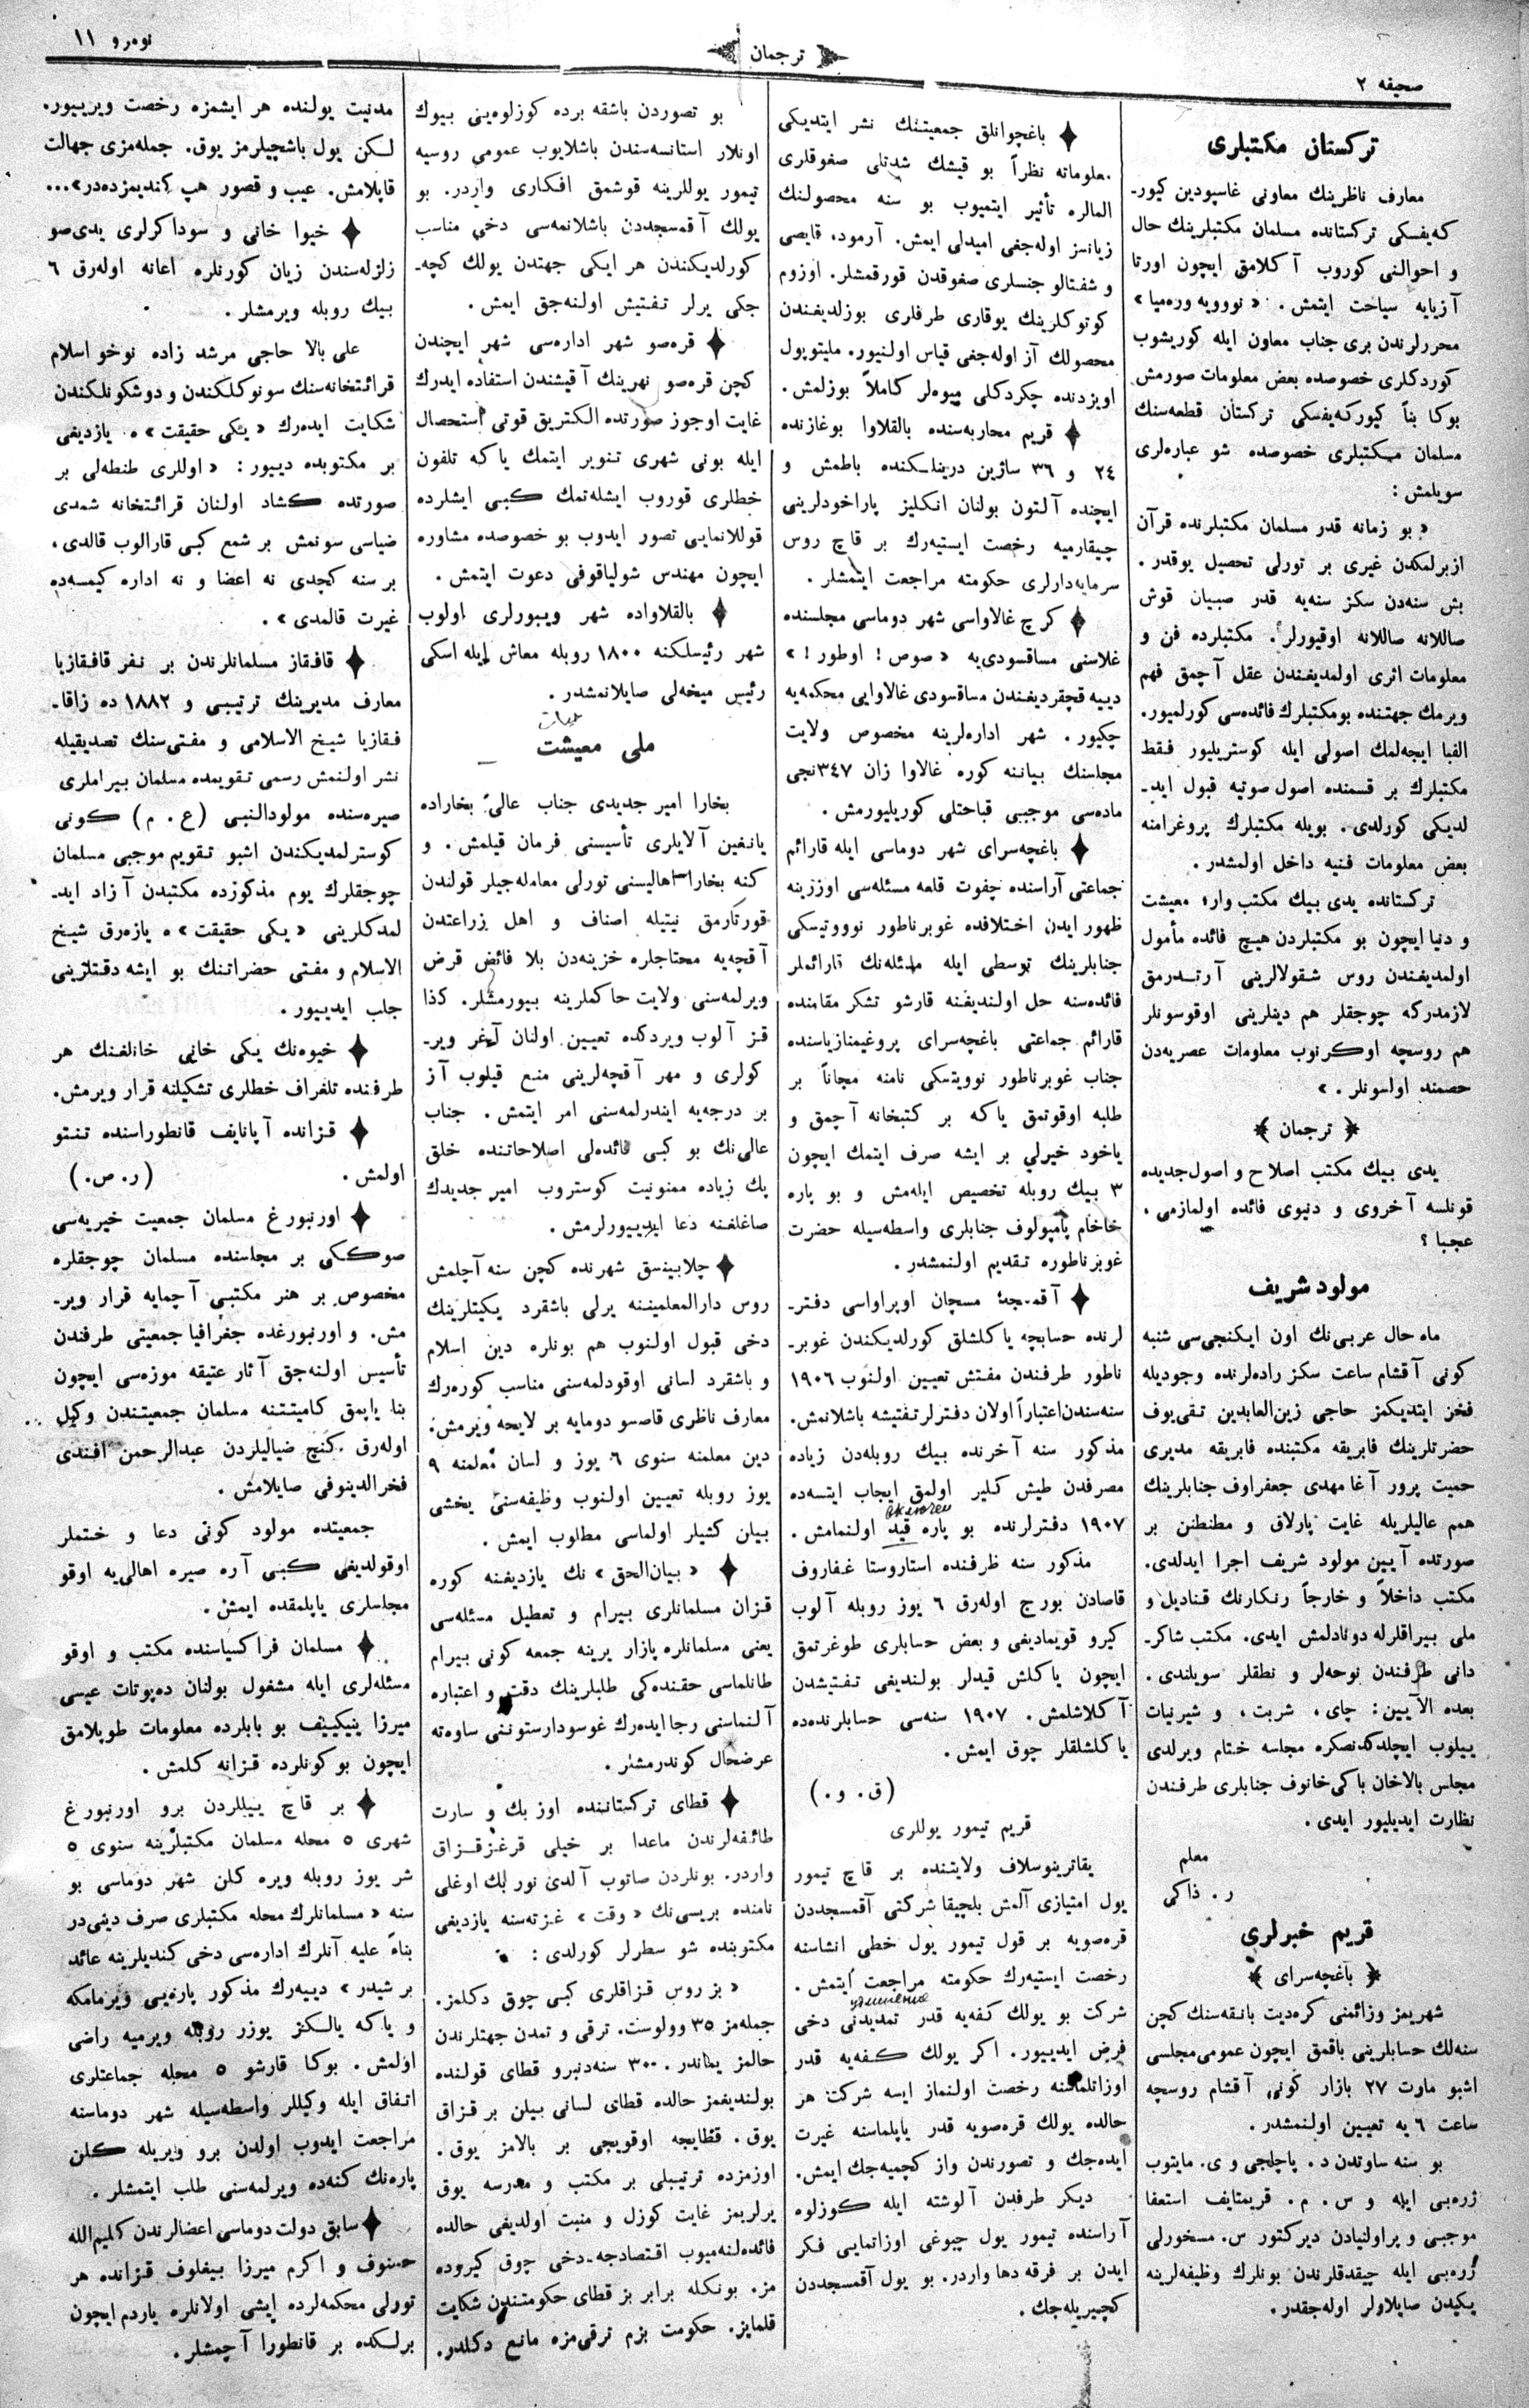 صحیفه ۲
ترجمان
نومرو ۱۱
ترکستان مکتبلری
معارف ناظرینك معاونی غاسپودین کیور-
که‌یفسکی ترکستانده مسلمان مکتبلرینك حال
و احوالنی کوروب آکلامق ایچون اورتا
آزیایه سیاحت ایتمش. «نوویه وره‌میا»
محررلرندن بری جناب معاون ایله کوریشوب
کوردکلری خصوصده بعض معلومات صورمش
بوکا بناً کیورکه‌یفسکی ترکستان قطعه‌سنك
مسلمان مکتبلری خصوصده شو عباره‌لری
سویلمش:
«بو زمانه قدر مسلمان مکتبلرنده قرآن
ازبرلمکدن غیری بر تورلی تحصیل یوقدر.
بش سنه‌دن سکز سنه‌یه قدر صبیان قوش
صاللانه صاللانه اوقیورلر. مکتبلرده فن و
معلومات اثری اولمدیغندن عقل آچمق فهم
ویرمك جهتنده بومکتبلرك فائده‌سی کورلمیور.
الفبا ایجه‌لمك اصولی ایله کوستریلیور فقط
مکتبلرك بر قسمنده اصول صوتیه قبول اید-
لدیکی کورلدی. بویله مکتبلرك پروغرامنه
بعض معلومات فنیه داخل اولمشدر.
ترکستانده یدی بیك مکتب وار؛ معیشت
و دنیا ایچون بو مکتبلردن هیچ فائده مأمول
اولمدیغندن روس شقولالرینی آرتدرمق
لازمدرکه چوجقلر هم دینلرینی اوقوسونلر
هم روسچه اوکرنوب معلومات عصریه‌دن
حصمند اولسونلر.»
﴿ ترجمان ﴾
یدی بیك مکتب اصلاح و اصول جدیده
قونلسه آخروی و دنیوی فائده اولمازمی،
عجبا؟
مولود شریف
ماه حال عربی‌نك اون ایکنجی‌سی شنبه
کونی آقشام ساعت سکز راده‌لرنده وجودیله
فخن ایتدیکمز حاجی زین‌العابدین تقی‌یوف
حضرتلرینك فابریقه مکتبنده فابریقه مدیری
حمیت پرور آغا مهدی جعفراوف جنابلرینك
همم عالیلریله غایت پارلاق و مطنطن بر
صورتده آیین مولود شریف اجرا ایدلدی.
مکتب داخلاً و خارجاً رنکارنك قنادیل و
ملی بیراقلرله دونادلمش ایدی. مکتب شاکر-
دانی طرفندن نوحه‌لر و نطقلر سویلندی.
بعده الآیین: چای، شربت، و شیرنیات
ییلوب ایچلدکدنصکره مجلسه ختام ویرلدی
مجلس بالاخان باکی‌خانوف جنابلری طرفندن
نظارت ایدیلیور ایدی.
معلم
ر. ذاکی
قریم خبرلری
﴿ باغچه‌سرای ﴾
شهریمز وزائمنی کره‌دیت بانقه‌سنك کچن
سنه‌لك حسابلرینی باقمق ایچون عمومی‌مجلسی
اشبو مارت ۲۷ بازار کونی آقشام روسچه
ساعت ۶ یه تعیین اولنمشدر.
بو سنه ساوتدن د. پاچلجی و ی. مایتوب
ژره‌بی ایله و س. م. قریمتایف استعفا
موجبی و پراولنیادن دیرکتور س. مسخورلی
ژره‌بی ایله چیقدقلرندن بونلرك وظیفه‌لرینه
یکیدن صایلاولر اوله‌جقدر.
✦ باغچوانلق جمعیتنك نشر ایتدیکی
معلوماته نظراً بو قیشك شدتلی صغوقلری
المالره تأثیر ایتمیوب بو سنه محصولنك
زیانسز اوله‌جغی امیدلی ایمش. آرمود، قایصی
و شفتالو جنسلری صغوقدن قورقمشلر. اوزوم
کوتوکلرینك یوقاری طرفلری بوزلدیغندن
محصولك آز اوله‌جغی قیاس اولنیور. ملیتوپول
اویزدنده چکردکلی میوه‌لر کاملاً بوزلمش.
✦ قریم محاربه‌سنده بالقلاوا بوغازنده
۲۴ و ۳۶ ساژین درینلکنده باطمش و
ایچنده آلتون بولنان انکلیز پاراخودلرینی
چیقارمیه رخصت ایستیه‌رك بر قاچ روس
سرمایه‌دارلری حکومته مراجعت ایتمشلر.
✦ کرچ غالاواسی شهر دوماسی مجلسنده
غلاسنی مساقسودی‌یه «صوص! اوطور!»
دییه قچقردیغندن مساقسودی غالاوایی محکمه‌یه
چکیور. شهر اداره‌لرینه مخصوص ولایت
مجلسنك بیاننه کوره غالاوا زان ۳۴۷نجی
ماده‌سی موجبی قباحتلی کوریلیورمش.
✦ باغچه‌سرای شهر دوماسی ایله قارائم
جماعتی آراسنده چفوت قلعه مسئله‌سی اوزرینه
ظهور ایدن اختلافده غوبرناطور نوووتیسکی
جنابلرینك توسطی ایله مسئله‌نك قارائملر
فائده‌سنه حل اولندیغنه قارشو تشکر مقامنده
قارائم جماعتی باغچه‌سرای پروغیمنازیاسنده
جناب غوبرناطور نوویتسکی نامنه مجاناً بر
طلبه اوقوتمق یاکه بر کتبخانه آچمق و
یاخود خیرلی بر ایشه صرف ایتمك ایچون
۳ بیك روبله تخصیص ایله‌مش و بو پاره
خاخام پامپولوف جنابلری واسطه‌سیله حضرت
غوبرناطوره تقدیم اولنمشدر.
✦ آقمسجد: مسچان اوپراواسی دفتر-
لرنده حسابچه یاکلشلق کورلدیکندن غوبر-
ناطور طرفندن مفتش تعیین اولنوب ۱۹۰۶
سنه‌سندن‌اعتباراً اولان دفترلرتفتیشه باشلانمش.
مذکور سنه آخرنده بیك روبله‌دن زیاده
مصرفدن طیش کلیر اولمق ایجاب ایتسه‌ده
۱۹۰۷ دفترلرنده بو پاره قید اولنمامش.
مذکور سنه ظرفنده استاروستا غفاروف
قاصادن بورج اوله‌رق ۶ یوز روبله آلوب
کیرو قویمادیغی و بعض حسابلری طوغرتمق
ایچون یاکلش قیدلر بولندیغی تفتیشدن
آکلاشلمش. ۱۹۰۷ سنه‌سی حسابلرنده‌ده
یاکلشلقلر چوق ایمش.
(ق. و.)
قریم تیمور یوللری
یقاترینوسلاف ولایتنده بر قاچ تیمور
یول امتیازی آلمش بلچیقا شرکتی آقمسجددن
قره‌صویه بر قول تیمور یول خطی انشاسنه
رخصت ایستیه‌رك حکومته مراجعت ایتمش.
شرکت بو یولك کفه‌یه قدر تمدیدنی دخی
فرض ایدییور. اکر یولك کفه‌یه قدر
اوزاتلماسنه رخصت اولنماز ایسه شرکت هر
حالده یولك قره‌صویه قدر یاپلماسنه غیرت
ایده‌جك و تصورندن واز کچمیه‌جك ایمش.
دیکر طرفدن آلوشته ایله کوزلوه
آراسنده تیمور یول چبوغی اوزاتمایی فکر
ایدن بر فرقه دها واردر. بو یول آقمسجددن
کچیریله‌جك.
بو تصوردن باشقه برده کوزلوه‌یی بیوك
اونلار استانسه‌سندن باشلایوب عمومی روسیه
تیمور یوللرینه قوشمق افکاری واردر. بو
یولك آقمسجددن باشلانمه‌سی دخی مناسب
کورلدیکندن هر ایکی جهتدن یولك کچه-
جکی یرلر تفتیش اولنه‌جق ایمش.
✦ قره‌صو شهر اداره‌سی شهر ایچندن
کچن قره‌صو نهرینك آقیشندن استفاده ایدرك
غایت اوجوز صورتده الکتریق قوتی استحصال
ایله بونی شهری تنویر ایتمك یاکه تلفون
خطلری قوروب ایشله‌تمك کبی ایشلرده
قوللانمایی تصور ایدوب بو خصوصده مشاوره
ایچون مهندس شولیاقوفی دعوت ایتمش.
✦ بالقلاواده شهر ویبورلری اولوب
شهر رئیسلکنه ۱۸۰۰ روبله معاش ایله اسکی
رئیس میخه‌لی صایلانمشدر.
ملی معیشت
بخارا امیر جدیدی جناب عالی بخاراده
یانغین آلایلری تأسیسنی فرمان قیلمش. و
کنه بخارا اهالیسنی تورلی معامله‌جیلر قولندن
قورتارمق نیتیله اصناف و اهل زراعتدن
آقچه‌یه محتاجلره خزینه‌دن بلا فائض قرض
ویرلمه‌سنی ولایت حاکملرینه بیورمشلر. کذا
قز آلوب ویردکده تعیین اولنان آغر ویر-
کولری و مهر آقچه‌لرینی منع قیلوب آز
بر درجه‌یه ایندرلمه‌سنی امر ایتمش. جناب
عالی‌نك بو کبی فائده‌لی اصلاحاتنده خلق
پك زیاده ممنونیت کوستروب امیر جدیدك
صاغلغنه دعا ایدییورلرمش.
✦ چلابینسق شهرنده کچن سنه آچلمش
روس دارالمعلمیننه یرلی باشقرد یکیتلرینك
دخی قبول اولنوب هم بونلره دین اسلام
و باشقرد لسانی اوقودلمه‌سنی مناسب کوره‌رك
معارف ناظری قاصسو دومایه بر لایحه ویرمش:
دین معلمنه سنوی ۶ یوز و لسان معلمنه ۹
یوز روبله تعیین اولنوب وظیفه‌سنی یخشی
بیان کشیلر اولماسی مطلوب ایمش.
✦ «بیان‌الحق» نك یازدیغنه کوره
قزان مسلمانلری بیرام و تعطیل مسئله‌سی
یعنی مسلمانلره پازار یرینه جمعه کونی بیرام
طانلماسی حقنده‌کی طلبلرینك دقت و اعتباره
آلنماسنی رجا ایده‌رك غوسودارستوننی ساوه‌ته
عرضحال کوندرمشلر.
✦ قطای ترکستاننده اوزبك و سارت
طائفه‌لرندن ماعدا بر خیلی قرغزقزاق
واردر. بونلردن صاتوب آلدی نور بك اوغلی
نامنده بریسی‌نك «وقت» غزته‌سنه یازدیغی
مکتوبنده شو سطرلر کورلدی:
«بز روس قزاقلری کبی چوق دکلمز.
جمله‌مز ۳۵ وولوست. ترقی و تمدن جهتلرندن
حالمز یماندر. ۳۰۰ سنه‌دنبرو قطای قولنده
بولندیغمز حالده قطای لسانی بیلن بر قزاق
یوق. قطایجه اوقویجی بر بالامز یوق.
اوزمزده ترتیبلی بر مکتب و مدرسه یوق
یرلریمز غایت کوزل و منبت اولدیغی حالده
فائده‌لنه‌میوب اقتصادجه‌دخی چوق کیروده
مز. بونکله برابر بز قطای حکومتندن شکایت
قلمایز. حکومت بزم ترقی‌مزه مانع دکلدر.
مدنیت یولنده هر ایشمزه رخصت ویرییور.
لکن یول باشچیلرمز یوق. جمله‌مزی جهالت
قاپلامش. عیب و قصور هپ کندیمزده‌در»...
✦ خیوا خانی و سوداکرلری یدی‌صو
زلزله‌سندن زیان کورنلره اعانه اوله‌رق ۶
بیك روبله ویرمشلر.
علی بالا حاجی مرشد زاده نوخو اسلام
قرائتخانه‌سنك سونوکلکندن و دوشکونلکندن
شکایت ایده‌رك «یکی حقیقت» ه یازدیغی
بر مکتوبده دییور: «اوللری طنطه‌لی بر
صورتده کشاد اولنان قرائتخانه شمدی
ضیاسی سونمش بر شمع کبی قارالوب قالدی،
بر سنه کچدی نه اعضا و نه اداره کیمسه‌ده
غیرت قالمدی».
✦ قافقاز مسلمانلرندن بر نفر قافقازیا
معارف مدیرینك ترتیبی و ۱۸۸۲ ده زاقا-
فقازیا شیخ الاسلامی و مفتی‌سنك تصدیقیله
نشر اولنمش رسمی تقویمده مسلمان بیراملری
صیره‌سنده مولودالنبی (ع. م) کونی
کوسترلمدیکندن اشبو تقویم موجبی مسلمان
چوجقلرك یوم مذکوزده مکتبدن آزاد اید-
لمدکلرینی «یکی حقیقت» ه یازه‌رق شیخ
الاسلام و مفتی حضراتنك بو ایشه دقتلرینی
جلب ایدییور.
✦ خیوه‌نك یکی خانی خانلغنك هر
طرفنده تلغراف خطلری تشکیلنه قرار ویرمش.
✦ قزانده آپانایف قانطوراسنده تنتو
اولمش. (ر. ص.)
✦ اورنبورغ مسلمان جمعیت خیریه‌سی
صوککی بر مجلسنده مسلمان چوجقلره
مخصوص بر هنر مکتبی آچمایه قرار ویر-
مش. و اورنبورغده جغرافیا جمعیتی طرفندن
تأسیس اولنه‌جق آثار عتیقه موزه‌سی ایچون
بنا یاپمق کامیتتنه مسلمان جمعیتندن وکیل
اوله‌رق کنچ ضیالیلردن عبدالرحمن افندی
فخرالدینوفی صایلامش.
جمعیتده مولود کونی دعا و ختملر
اوقولدیغی کبی آره صیره اهالی‌یه اوقو
مجلسلری یاپلمقده ایمش.
✦ مسلمان فراکسیاسنده مکتب و اوقو
مسئله‌لری ایله مشغول بولنان ده‌پوتات عیسی
میرزا ینیکییف بو بابلرده معلومات طوپلامق
ایچون بو کونلرده قزانه کلمش.
✦ بر قاچ ییللردن برو اورنبورغ
شهری ۵ محله مسلمان مکتبلرینه سنوی ۵
شر یوز روبله ویره کلن شهر دوماسی بو
سنه «مسلمانلرك محله مکتبلری صرف دینی‌در
بناءً علیه آنلرك اداره‌سی دخی کندیلرینه عائد
بر شیدر» دییه‌رك مذکور پاره‌یی ویرمامکه
و یاکه یالکز یوزر روبله ویرمیه راضی
اولمش. بوکا قارشو ۵ محله جماعتلری
اتفاق ایله وکیللر واسطه‌سیله شهر دوماسنه
مراجعت ایدوب اولدن برو ویریله کلن
پاره‌نك کنه‌ده ویرلمه‌سنی طلب ایتمشلر.
✦ سابق دولت دوماسی اعضالرندن کلیم‌الله
حسنوف و اکرم میرزا بیغلوف قزانده هر
تورلی محکمه‌لرده ایشی اولانلره یاردم ایچون
برلکده بر قانطورا آچمشلر.